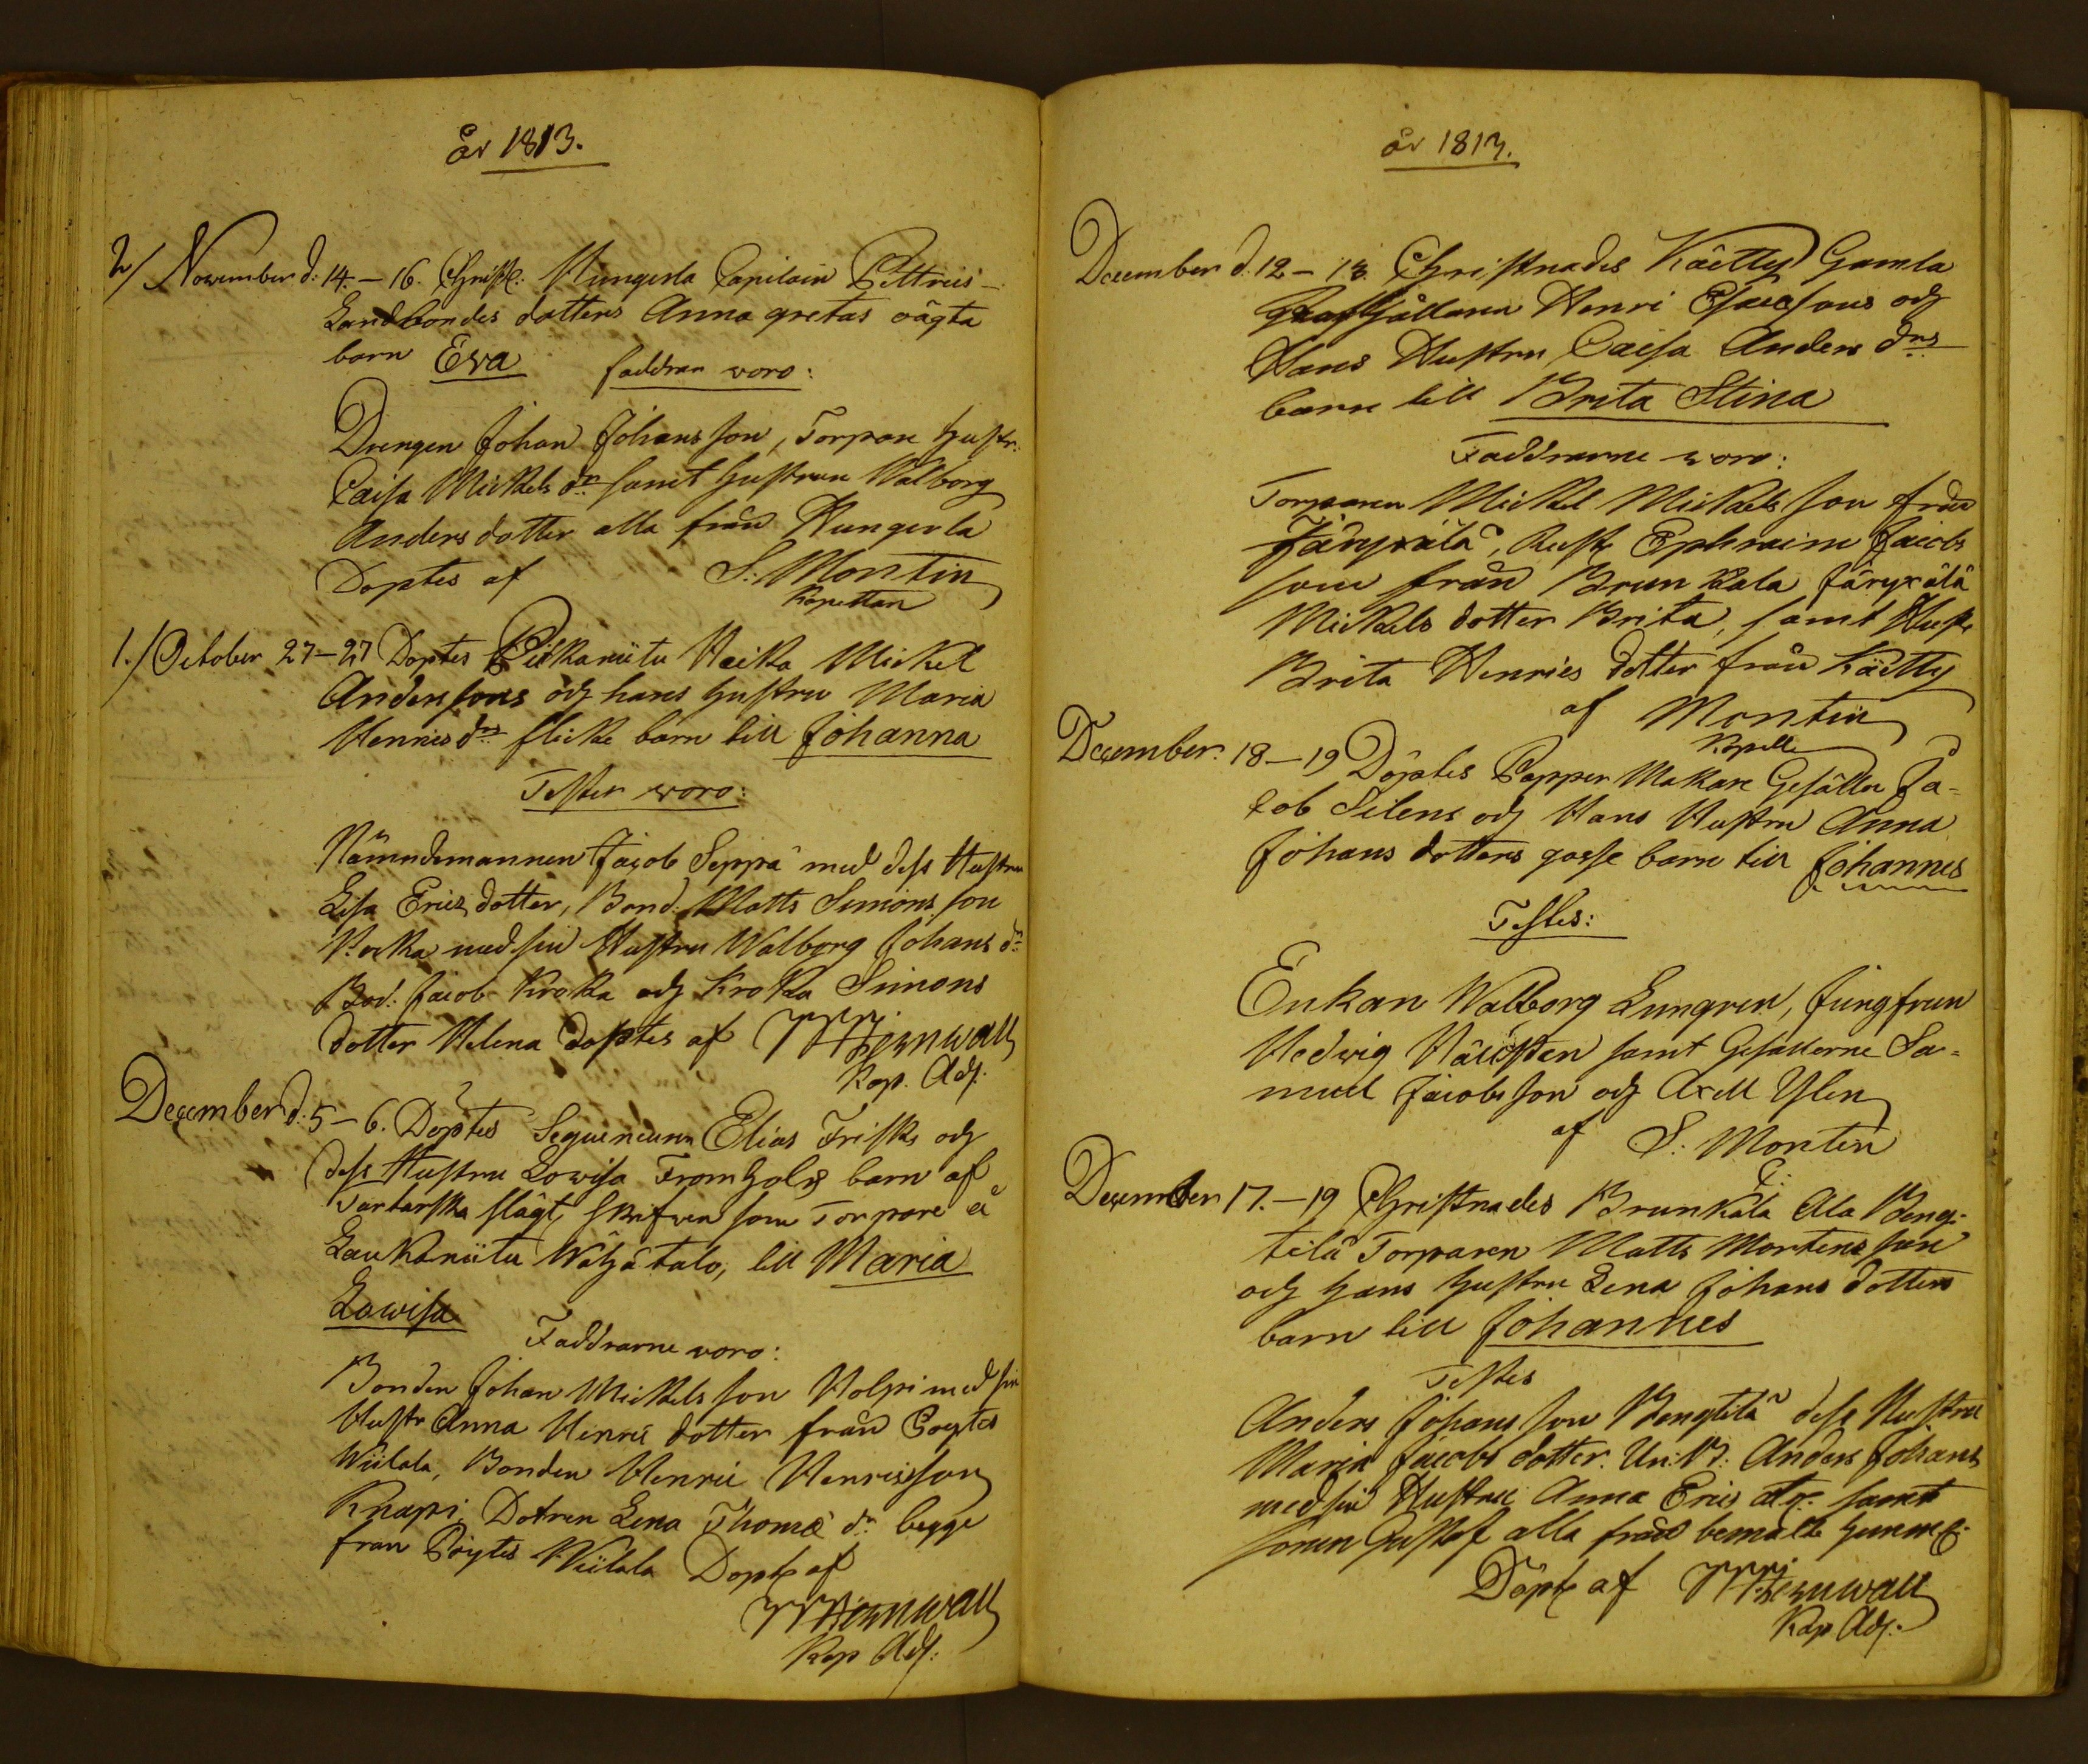 år 1813.
2/ November d: 14.–16. Christ: Hungerla Capilain Pettreis-
Landbondes dotters Anna gretas oägta
barn Eva faddrar woro:
Drengen Johan Johansson, Torpare hustr:
Caisa Mickels dr samt hustrun Walborg
Anders dotter alla från Hungerla
Döptes af S: Montin
Kapellan
1./ October 27–27 Döptes Mickel
Anderssons och hans hustru Maria
Henrics drs flicke barn till Johanna
Testes woro:
Nämndemannen Jacob Seppä med dess Hustru
Lisa Erics dotter, Bond: Matts Simons son
med sin Hustru Walborg Johans dr
Bod: Jacob Krokka och Krokka Simons
dotter Helena döptes af
Kap. Adj.
December d. 5–6. Döptes Elias Frisks och
dess Hustru Lowisa Fromholds barn af
Tartarska slägt, skrifven som Torpare å
Laukkaniitu Wähätalo, till Maria
Lowisa
Faddrarne woro:
Bonden Johan Mickels son Holpi med sin
Hustr Anna Henric dotter från Pöytes
Wiilala, Bonden Henric Henricsson
Knapi, Dotren Lena Thomæ dr begge
från Pöytes Wiilala Döpt af
Kap Adj:
år 1813.
December d. 12–13. Christnades Käetty Gamla
Henri Esaessons och
Hans Hustru Caisa Anders drs
barn till Brita Stina
Faddrarne woro:
Torparen Mickel Mickels son från
Järyxälä, Rust. Ephraim Jacobs
son från Brunkala Järyxälä
Mickels dotter Brita, samt Hust.
Brita Henrics dotter från Käetty
af Montin
Kapell.
December. 18–19 Döptes Papper Makare Gesällen Ja-
cob Silens och Hans Hustru Anna
Johans dotters gosse barn till Johannes
Testes:
Enkan Walborg Lungren, Jungfrun
Hedwig samt Gesällerne Sa-
muel Jacobsson och Axell Ylen
af S: Montin
C:
December 17.–19 Christnades Brunkala Ala Beng-
tilä Torparen Matts Mortens son
och hans hustru Lena Johans dotters
barn till Johannes
Testes
Anders Johans son Bengtilä dess Hustru
Maria Jacobs dotter. Un: B: Anders Johans
med sin Hustru Anna Erics dtr. samt
sonen Gustaf alla från bemälte hemm:
Döpt af
Kap Adj.